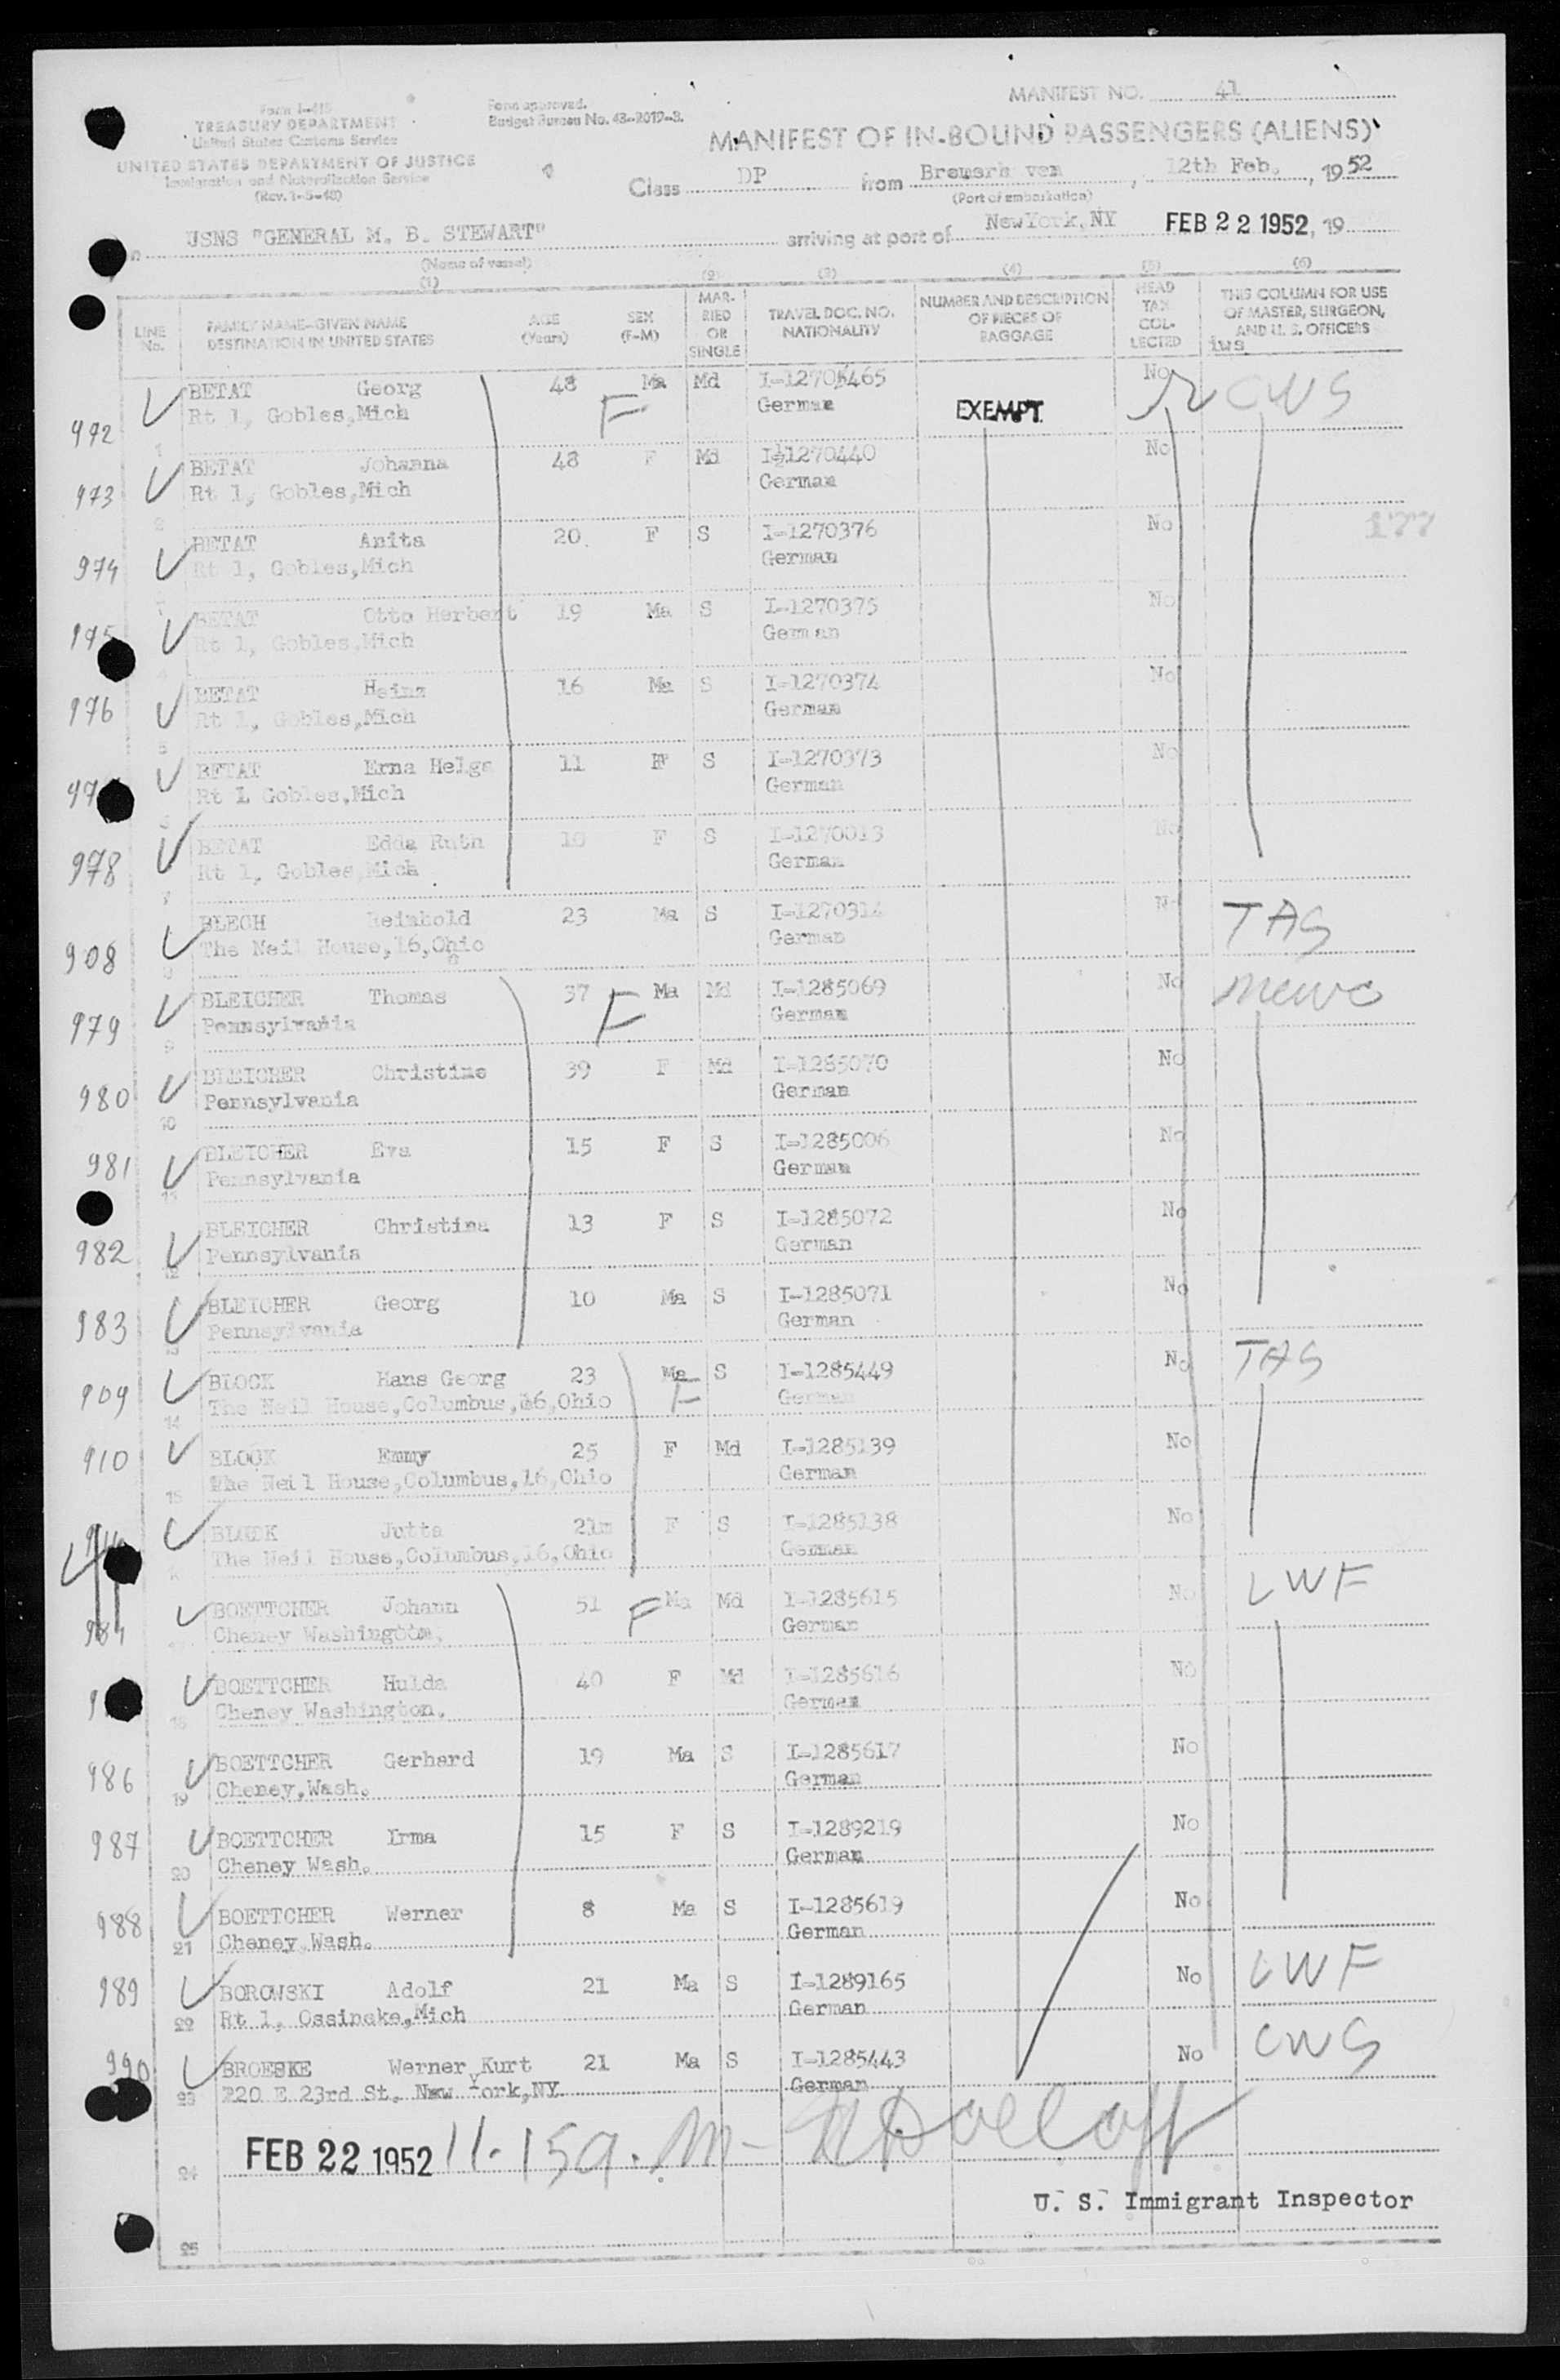 MANIFEST NO. 41
Form I-418
TREASURY DEPARTMENT
United States Customs Service
UNITED STATES DEPARTMENT OF JUSTICE
Immigration and Naturalization Service
(Rev. 1-5-48)
Form approved.
Budget Bureau No. 43-2017-3.
MANIFEST OF IN-BOUND PASSENGERS (ALIENS)
Class DP from Bremerh ven, 12th Feb., 1952
(Port of embarkation)
USNS "GENERAL M. B. STEWART" arriving at port of NewYork,NY FEB 22 1952, 19
(Name of vessel)
(1) (2) (3) (4) (5) (6)
LINE No. FAMILY NAME—GIVEN NAME DESTINATION IN UNITED STATES AGE (Years) SEX (F-M) MARRIED OR SINGLE TRAVEL DOC. NO. NATIONALITY NUMBER AND DESCRIPTION OF PIECES OF BAGGAGE HEAD TAX COLLECTED THIS COLUMN FOR USE OF MASTER, SURGEON, AND U. S. OFFICERS
iws
972 BETAT Georg 48 Ma Md No CWS
Rt 1, Gobles,Mich F German EXEMPT
973 BETAT Johanna 48 F Md I-1270440 No
Rt 1, Gobles,Mich German
177
974 BETAT Anita 20 F S I-1270376 No
Rt 1, Gobles,Mich German
975 BETAT Otto Herbert 19 Ma S I-1270375 No
Rt 1, Gobles,Mich German
976 BETAT Heinz 16 Ma S I-1270374 No
Rt 1, Gobles,Mich German
BETAT Erna Helga 11 F S I-1270373 No
Rt 1 Gobles,Mich German
978 BETAT Edda Ruth 10 F S I-1270013 No
Rt 1, Gobles,Mich German
908 BLECH Reinhold 23 Ma S No TAS
The Neil House,16,Ohio German
979 BLEICHER Thomas 37 F Ma Md I-1285069 No
Pennsylvania German
980 BLEICHER Christine 39 F Md I-1285070 No
Pennsylvania German
10
981 BLEICHER Eva 15 F S I-1285006 No
Pennsylvania German
11
982 BLEICHER Christina 13 F S I-1285072 No
Pennsylvania German
12
983 BLEICHER Georg 10 Ma S I-1285071 No
Pennsylvania German
13
909 BLOCK Hans Georg 23 Ma S I-1285449 No TAS
The Neil House,Columbus,16,Ohio F German
14
910 BLOCK Emmy 25 F Md I-1285139 No
The Neil House,Columbus,16,Ohio German
15
BLOCK Jutta 21m F S I-1285138 No
The Neil House,Columbus,16,Ohio German
BOETTCHER Johann 51 F Ma Md I-1285615 No LWF
Cheney Washington, German
BOETTCHER Hulda 40 F Md I-1285616 No
Cheney Washington, German
18
986 BOETTCHER Gerhard 19 Ma S I-1285617 No
Cheney,Wash. German
19
987 BOETTCHER Irma 15 F S I-1289219 No
Cheney Wash. German
20
988 BOETTCHER Werner 8 Ma S I-1285619 No
Cheney Wash. German
21
989 BOROWSKI Adolf 21 Ma S I-1289165 No LWF
Rt 1, Ossineke,Mich German
22
990 BROESKE Werner Kurt 21 Ma S I-1285443 No CWS
220 E 23rd St. New York,NY German
23
FEB 22 1952 11.15a.m-
24
U. S. Immigrant Inspector
25